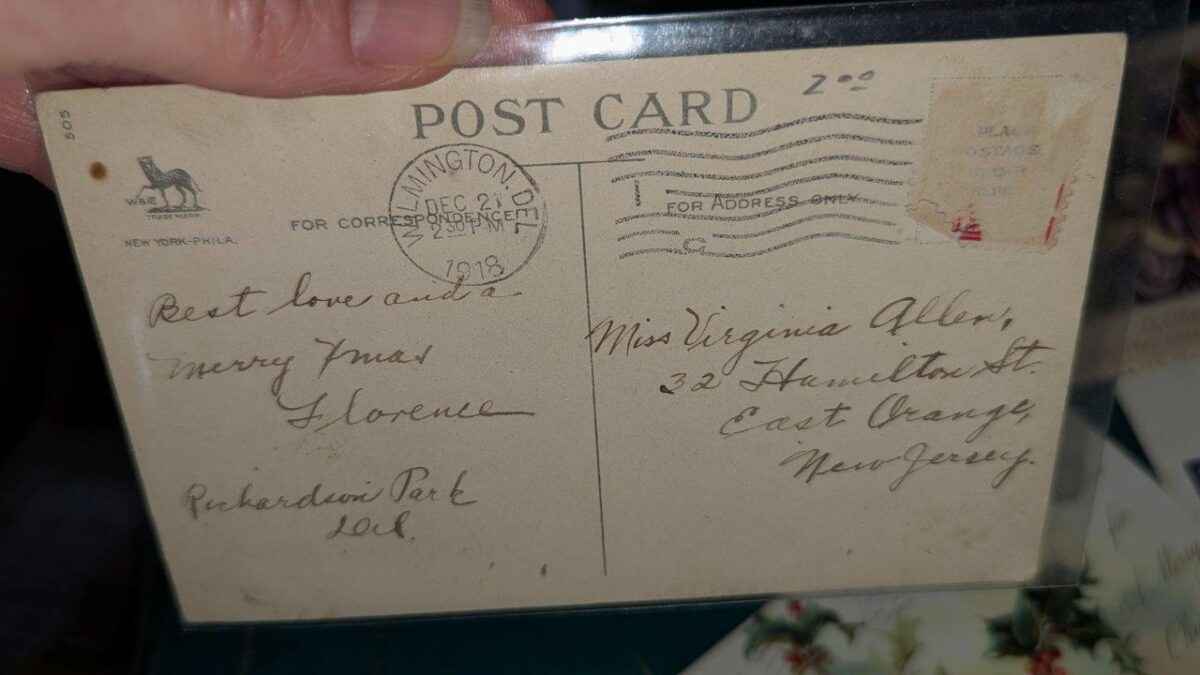 505
POST CARD
2 00
TRADE MARK
NEW YORK-PHILA.
FOR CORRESPONDENCE
WILMINGTON. DEL
DEC 21
2 30 PM
1918
FOR ADDRESS ONLY
Best love and a
merry Xmas
Florence
Richardson Park
Del.
Miss Virginia Allen,
32 Hamilton St.
East Orange,
New Jersey.